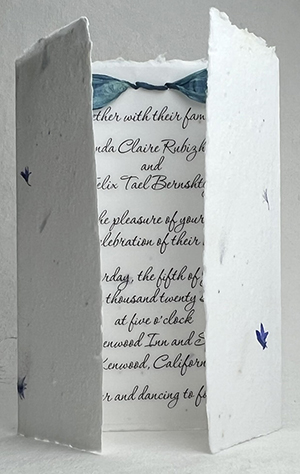 ether with their fam
nda Claire Rubizh
and
elix Tael Bernshty
he pleasure of your
elebration of their
rday, the fifth of
thousand twenty s
at five o'clock
enwood Inn and S
Kenwood, Californ
er and dancing to fo